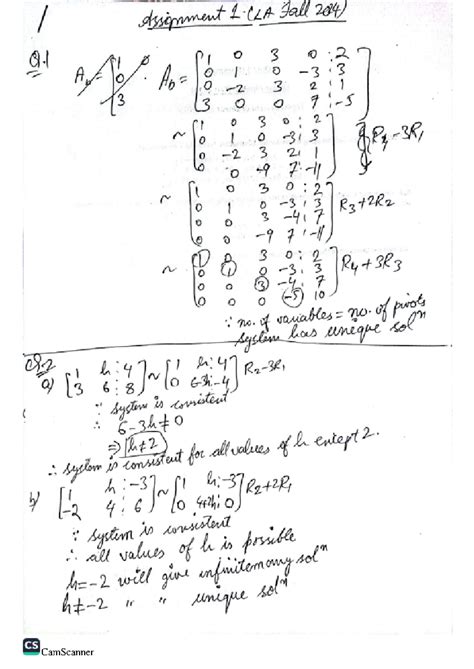 1
Assignment 1 (LA Fall 2024)
Q.1
A_b = [1 0 3 0 : 2
0 1 0 -3 : 3
0 -2 3 2 : 1
3 0 0 7 : -5]
~ [1 0 3 0 : 2
0 1 0 -3 : 3
0 -2 3 2 : 1
0 0 -9 7 : -11] R4 - 3R1
~ [1 0 3 0 : 2
0 1 0 -3 : 3
0 0 3 -4 : 7
0 0 -9 7 : -11] R3 + 2R2
~ [1 0 3 0 : 2
0 1 0 -3 : 3
0 0 3 -4 : 7
0 0 0 -5 : 10] R4 + 3R3
∵ no. of variables = no. of pivots
system has unique solⁿ
Q.2
a) [1 h : 4
3 6 : 8] ~ [1 h : 4
0 6-3h : -4] R2 - 3R1
∵ system is consistent
∴ 6 - 3h ≠ 0
⇒ h ≠ 2
∴ system is consistent for all values of h entept 2.
b) [1 h : -3
-2 4 : 6] ~ [1 h : -3
0 4+2h : 0] R2 + 2R1
∵ system is consistent
∴ all values of h is possible
h = -2 will give infinitemany solⁿ
h ≠ -2 " " unique solⁿ
CS CamScanner